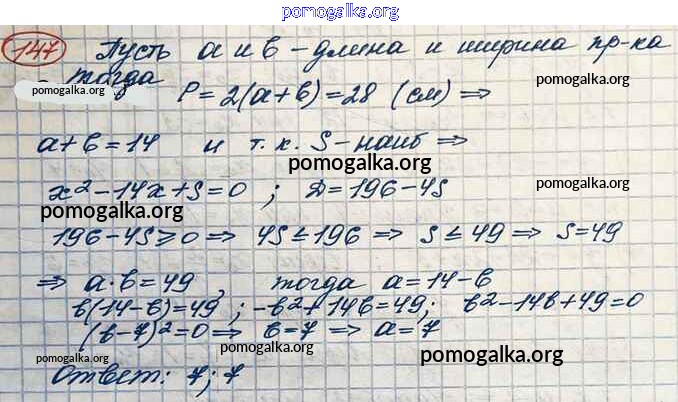 pomogalka.org
147 Пусть a и b – длина и ширина пр-ка
тогда pomogalka.org
pomogalka.org P = 2(a+b) = 28 (см) ⇒
a+b=14 и т.к. S – наиб ⇒
pomogalka.org
x² – 14x + S = 0 ; D = 196 – 4S pomogalka.org
pomogalka.org
196 – 4S ≥ 0 ⇒ 4S ≤ 196 ⇒ S ≤ 49 ⇒ S = 49
⇒ a·b = 49, тогда a = 14 – b
b(14 – b) = 49 ; –b² + 14b = 49; b² – 14b + 49 = 0
(b – 7)² = 0 ⇒ b = 7 ⇒ a = 7
pomogalka.org pomogalka.org pomogalka.org
Ответ: 7; 7